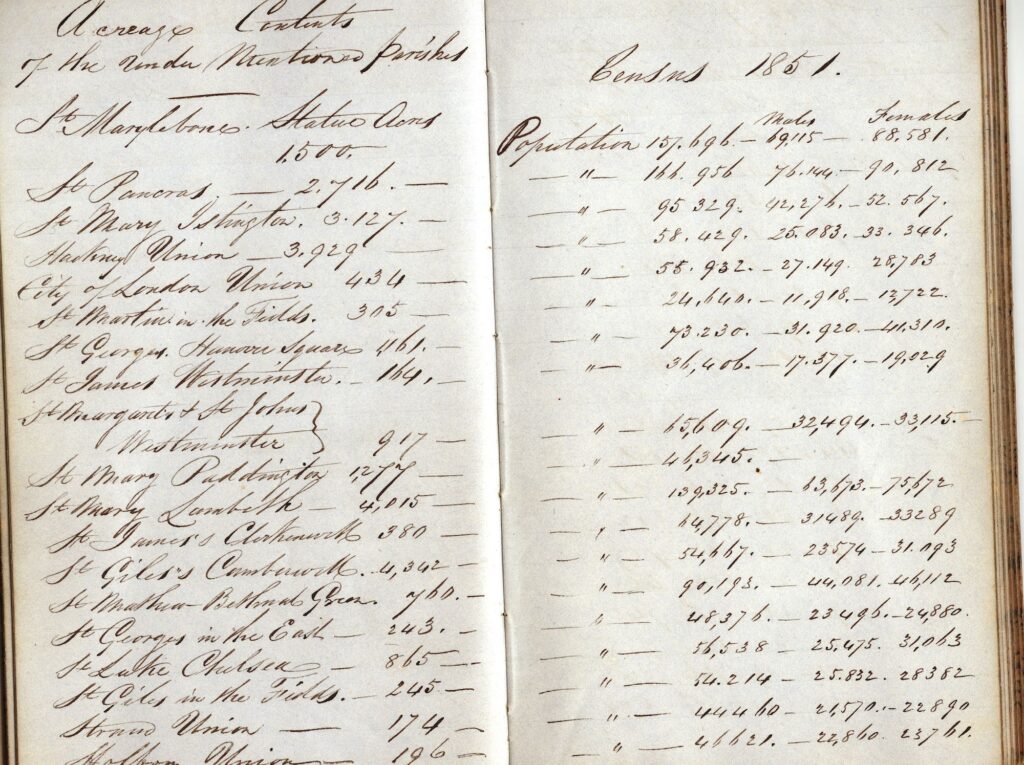 Acreage Contents
of the under Mentioned Parishes
St Marylebone. Statue Acres
1.500.
St Pancras — 2.716. —
St Mary Islington. 3.127. —
Hackney Union — 3.929 —
City of London Union 434 —
St Martin in the Fields. 305 —
St Georges. Hanovre Square 1161. —
St James Westminster. — 164. —
St Margarets & St Johns
Westminster } 917 —
St Mary Paddington 1,277 —
St Mary Lambeth — 4,015 —
St James's Clerkenwell 380 —
St Giles's Camberwell. 4,342 —
St Mathew Bethnal Green. 760. —
St Georges in the East — 243. —
St Luke Chelsea — 865 —
St Giles in the Fields. — 245 —
Strand Union — 174 —
Holborn Union — 196 —
Census 1851.
Males Females
Population 157.696 — 69,115 — 88.581.
— " — 166.956 76.144 — 90,812
— " — 95.329. 42.276. — 52.567.
— " — 58.429. 25.083. — 33.346.
— " — 55.932. — 27.149. 28,783
" 24,640. — 11,918. — 12,722.
" 73.230. — 31.920. — 41.310.
— " — 36,406. — 17.377. — 19,029
— " — 65,609. — 32,494. — 33,115. —
— " — 46,345. —
— " — 139,325. — 63,673. — 75,672
— " — 64,778. — 31489. — 33289
— " — 54,667. — 23574 — 31.093
— " — 90,193. — 44,081. — 46,112
— " — 48,376. — 23496. — 24,880.
— " — 56,538 — 25,475. 31,063
— " — 54.214 — 25.832. 28382
— " — 44460 — 21,570. — 22890
— " — 46621. — 22,860. 23,761.